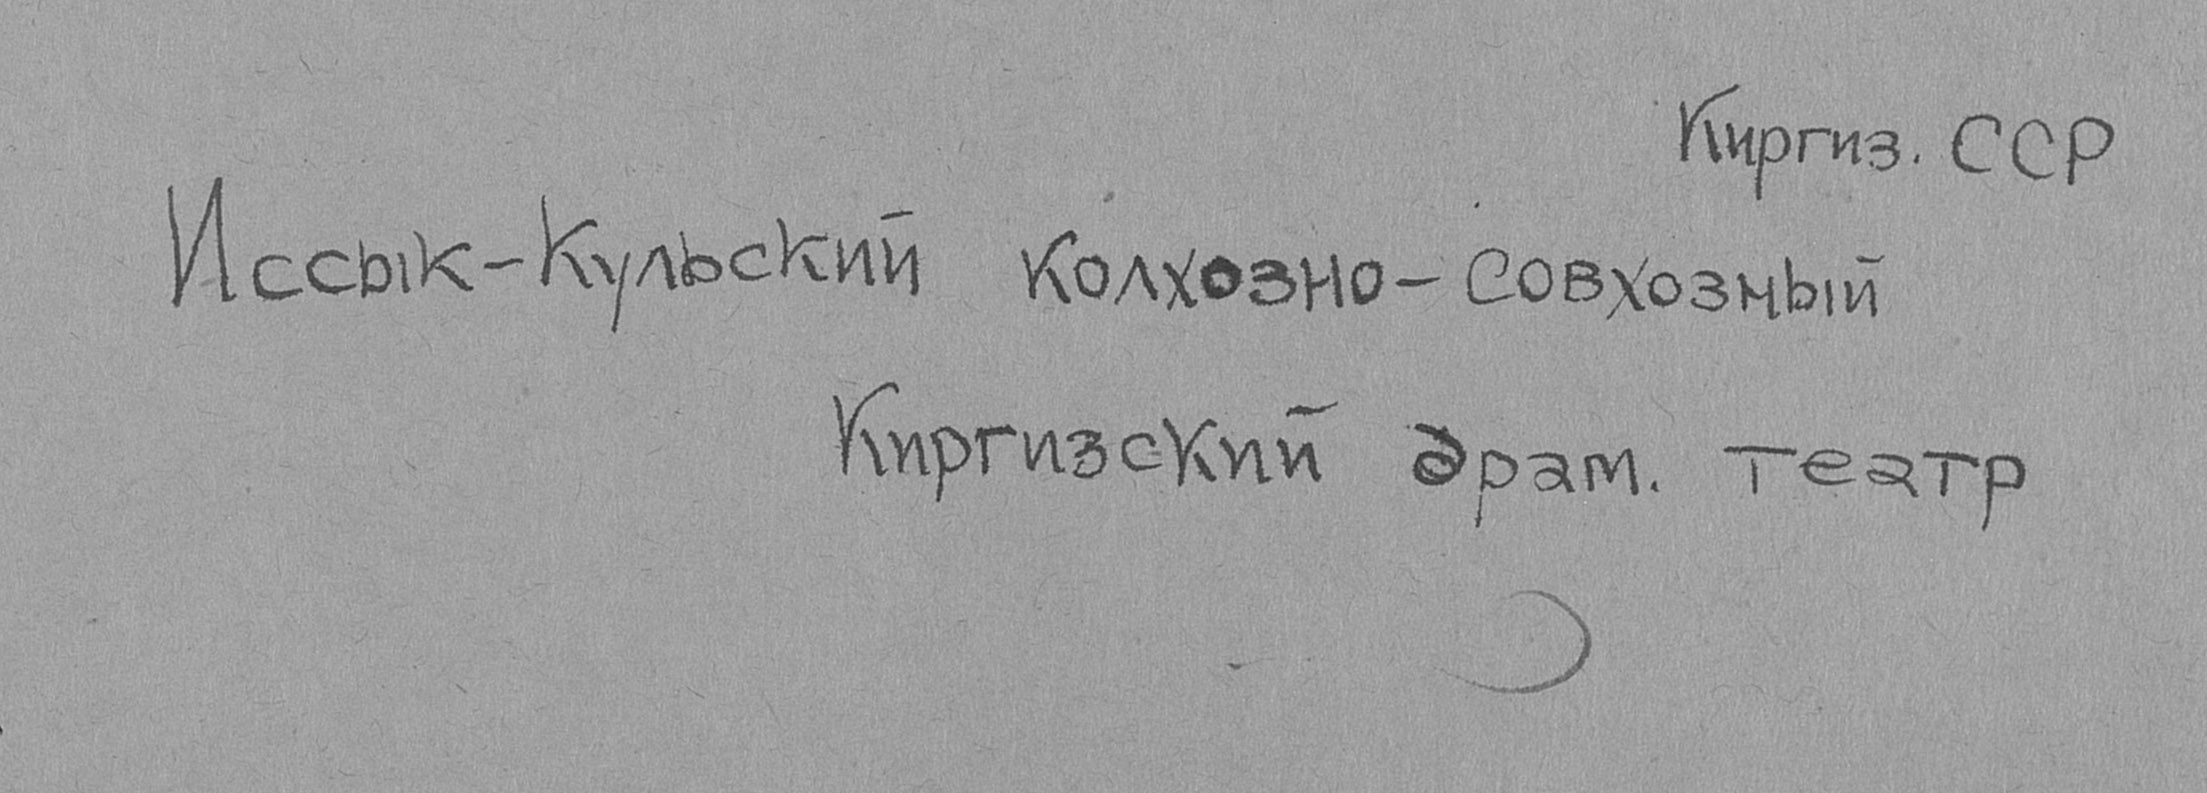 Киргиз. ССР
Иссык-Кульский колхозно-совхозный
Киргизский драм. театр